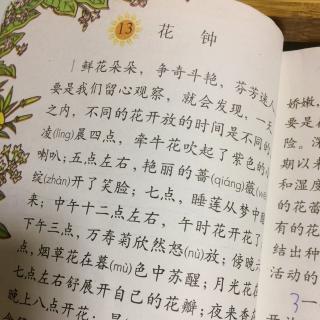 13 花 钟
鲜花朵朵，争奇斗艳，芬芳迷人
要是我们留心观察，就会发现，一天
之内，不同的花开放的时间是不同的
凌(líng)晨四点，牵牛花吹起了紫色的小
喇叭；五点左右，艳丽的蔷(qiáng)薇(wēi
绽(zhàn)开了笑脸；七点，睡莲从梦中醒
来；中午十二点左右，午时花开花了
下午三点，万寿菊欣然怒(nù)放；傍晚六
点，烟草花在暮(mù)色中苏醒；月光花在
七点左右舒展开自己的花瓣；夜来香在
晚上八点开花；昙
娇嫩，
要是在
险。深
期以来
和湿度
的花蕾
有的花
结出种
活动的
3一